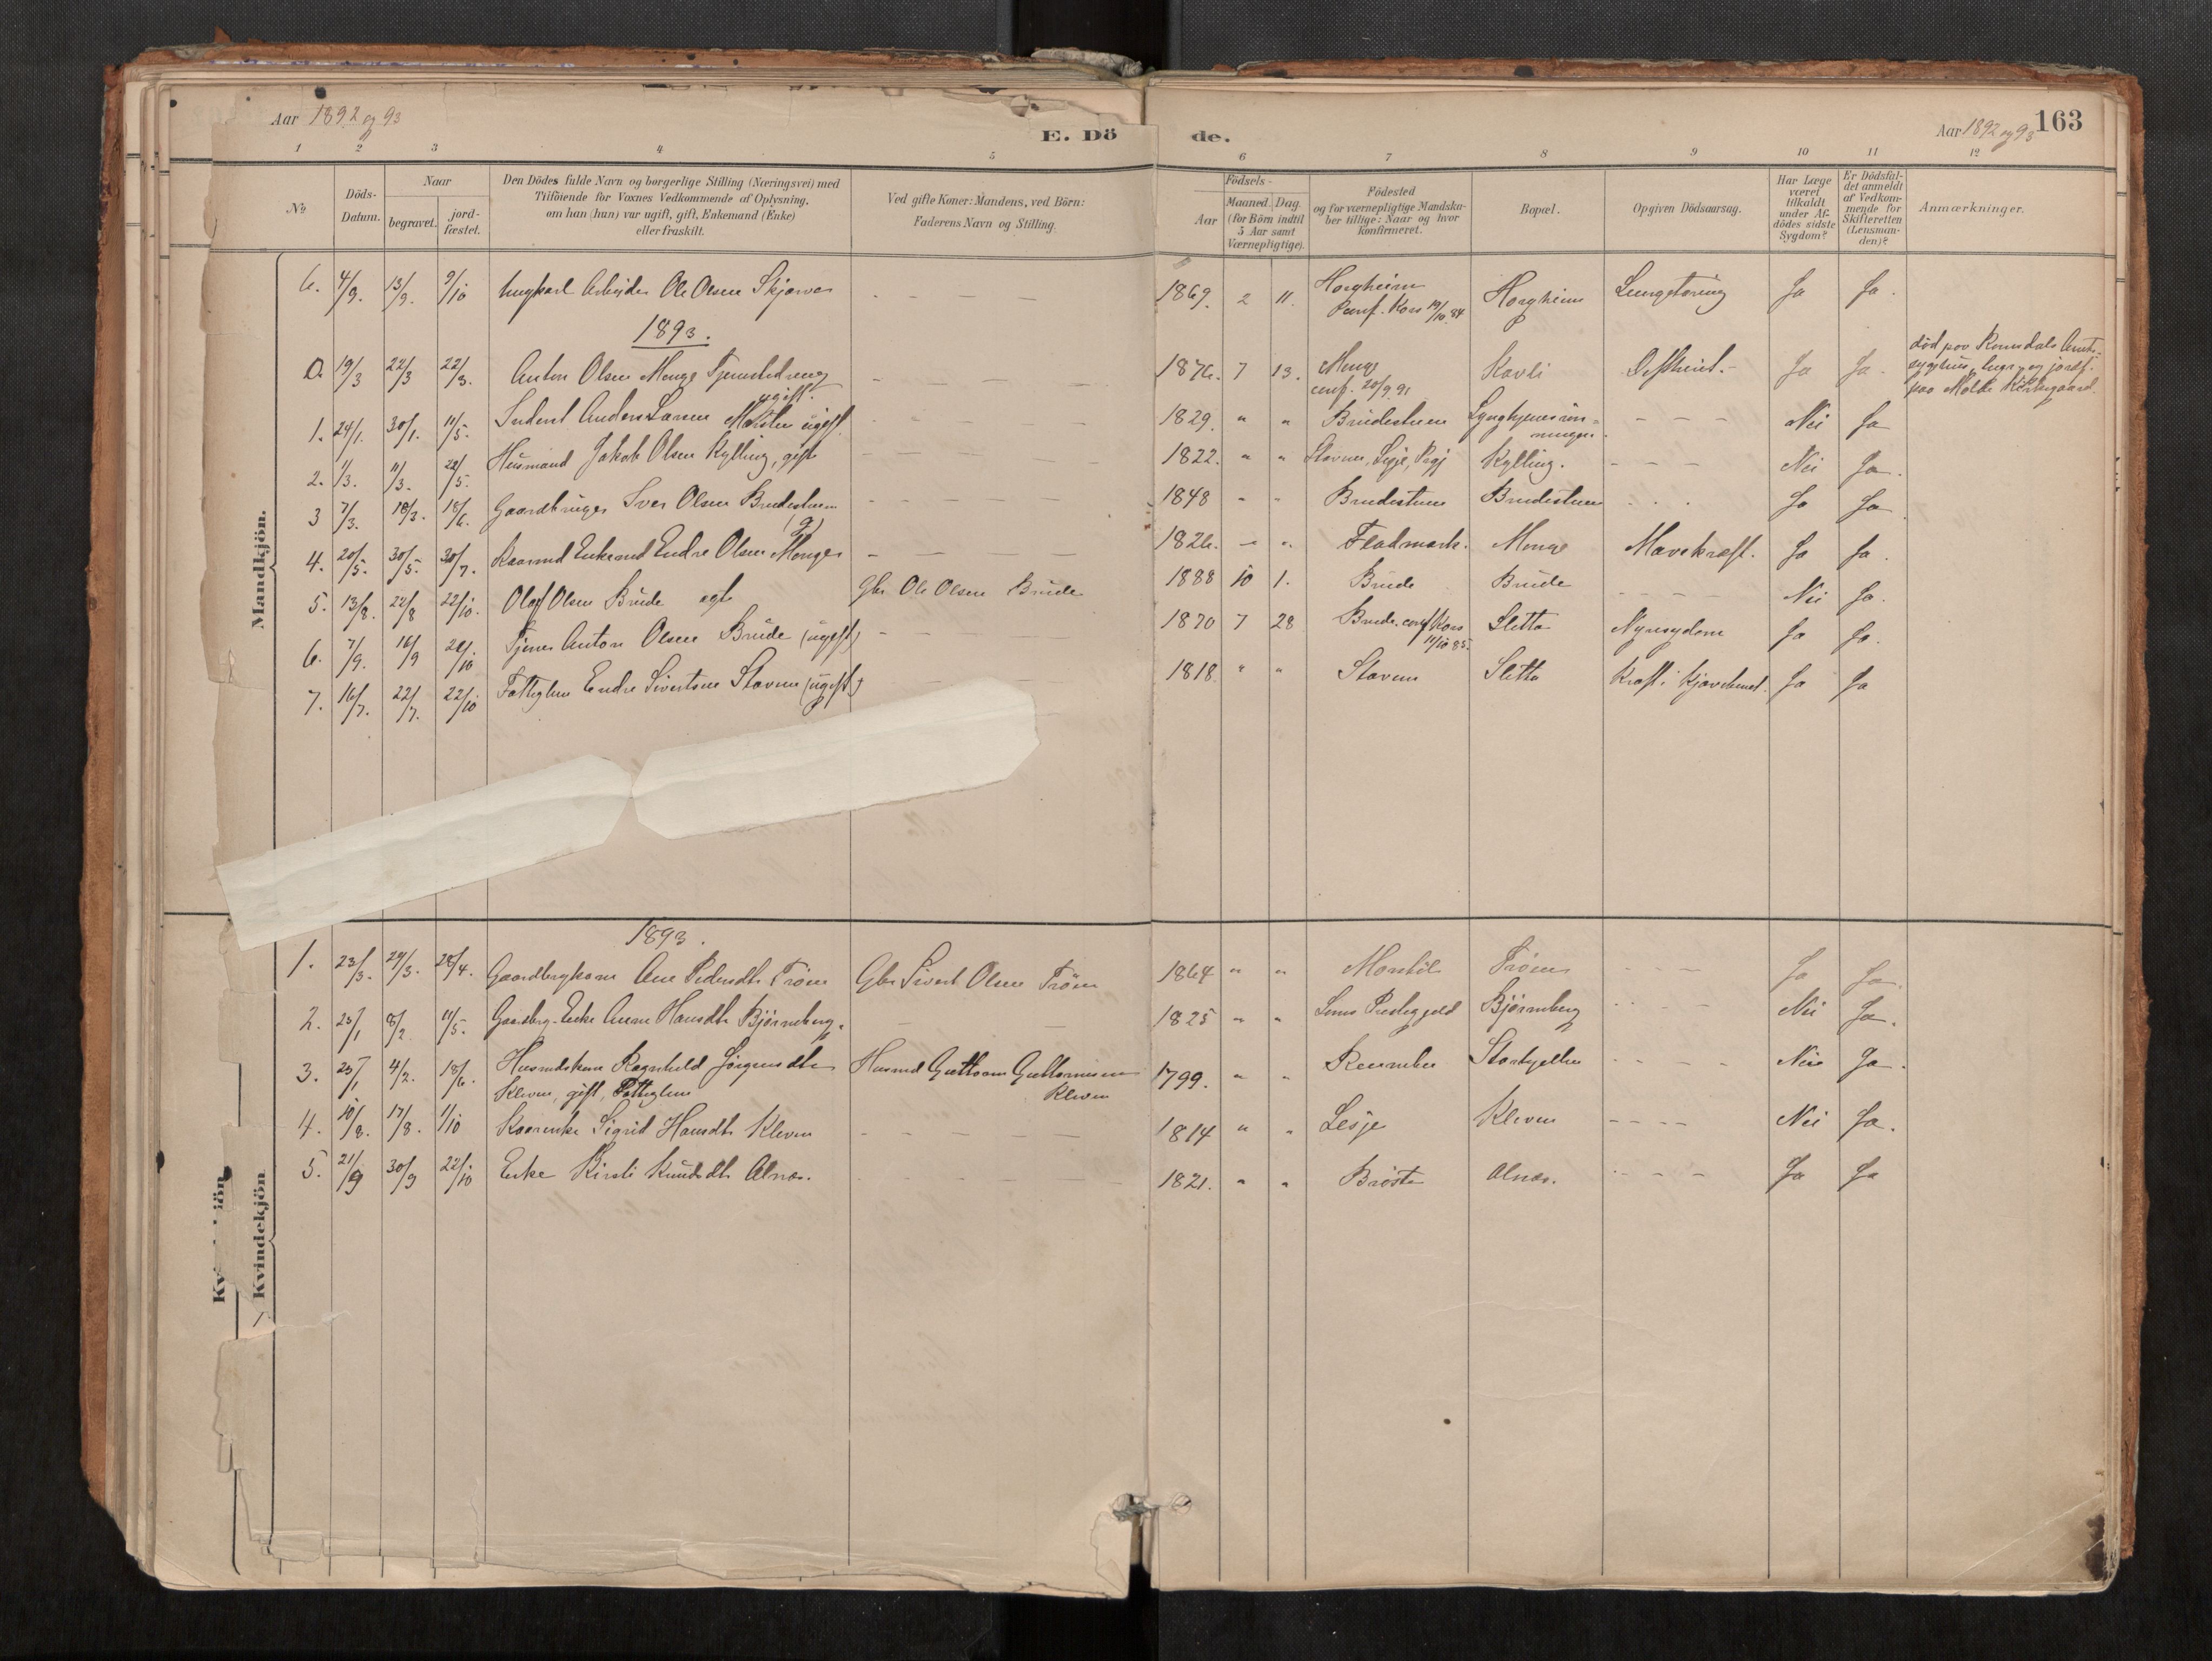 Aar 1892 og 93
E. Dö
de.
Aar 1892 og 93
163
1 2 3 4 5 6 7 8 9 10 11 12
No
Döds-Datum.
Naar
begravet.
jord-fæstet.
Den Dödes fulde Navn og borgerlige Stilling (Næringsvei) med
Tilföiende for Voxnes Vedkommende af Oplysning,
om han (hun) var ugift, gift, Enkemand (Enke)
eller fraskilt.
Ved gifte Koner: Mandens, ved Börn:
Faderens Navn og Stilling.
Födsels-
Aar
Maaned. Dag.
(for Börn indtil
5 Aar samt
Værnepligtige).
Födested
og for værnepligtige Mandska-
ber tillige: Naar og hvor
konfirmeret.
Bopæl.
Opgiven Dödsaarsag.
Har Læge
været
tilkaldt
under Af-
dödes sidste
Sygdom?
Er Dödsfal-
det anmeldt
af Vedkom-
mende for
Skifteretten
(Lensman-
den)?
Anmærkninger.
Mandkjön.
6. 4/9. 13/9. 9/10 Ungkarl Arbeider Ole Olsen Skjarves - - - - 1869. 2 11. Horgheim Horgheim Lungetæring Ja Ja.
Conf. Kors 19/10.84
1893.
0. 19/3 22/3 22/3. Anton Olsen Monge Tjenestedreng - - - - 1876. 7 13. Monge Ja Ja.
ugift.
conf. 20/9.91
død paa Romsdals Amts-
sygehus, begr. og jordf.
paa Molde Kirkegaard.
1. 24/1. 30/1. 11/5. Inderst Anders Larsen ugift - - - - 1829. " " Brudestuen - - - Nei Ja
2. 1/3. 11/3. 28/5. Husmand Jakob Olsen Kylling, gift - - - - 1822. " " Stavem, Lesje Prgj Kylling. - - - Nei Ja.
3 7/3. 18/3. 18/6. Gaardbruger Iver Olsen Brudestuen (g) - - - - 1848 " " Brudestuen Brudestuen Ja Ja
4. 20/5. 30/5. 30/7. Kaarmd Enkemd Endre Olsen Monge - - - - 1826. " " Fladmark. Monge Mavekræft. Ja Ja.
5. 13/8. 22/8 22/10. Olaf Olsen Brude egte Gbr Ole Olsen Brude 1888 10 1. Brude Brude - - - Nei Ja.
6. 7/9. 16/9 22/10 Tjener Anton Olsen Brude (ugift) - - - - 1870 7 28 Brude. conf Kors Sletta Nyresygdom Ja Ja.
11/10 85.
7. 16/7. 22/7. 22/10 Fattiglem Endre Sivertsen Stavem (ugift) 1818. " " Stavem Sletta Kræft i Kjævebenet. Ja Ja
Kvindekjön
1893.
1. 23/3. 29/3. 28/4. Gaardbrgkone Ane Pedersdtr Trøen Gbr Sivert Olsen Trøen 1864 " " Monstøl Trøen - - - Ja Ja.
2. 25/1 8/2. 11/5. Gaardbrg. Enke Anne Hansdtr Bjørneberg. - - - 1825 " " Præstegjeld Bjørneberg - - - Nei Ja.
3. 25/1 4/2. 18/6. Husmdskone Ragnhild Jørgensdtr Husmd Guttorm Guttormsen 1799. " " Storhjellen - - - Nei Ja.
Kleven, gift, Fattiglem Kleven
4. 10/8. 17/8. 1/10 Kaarenke Sigrid Hansdtr Kleven - - - - 1814 " " Lesje Kleven - - - - Nei Ja.
5. 21/9 30/9 22/10 Enke Kirsti Knudsdtr Alnæs. - - - - 1821. " " Brøste Alnæs. - - - Ja Ja